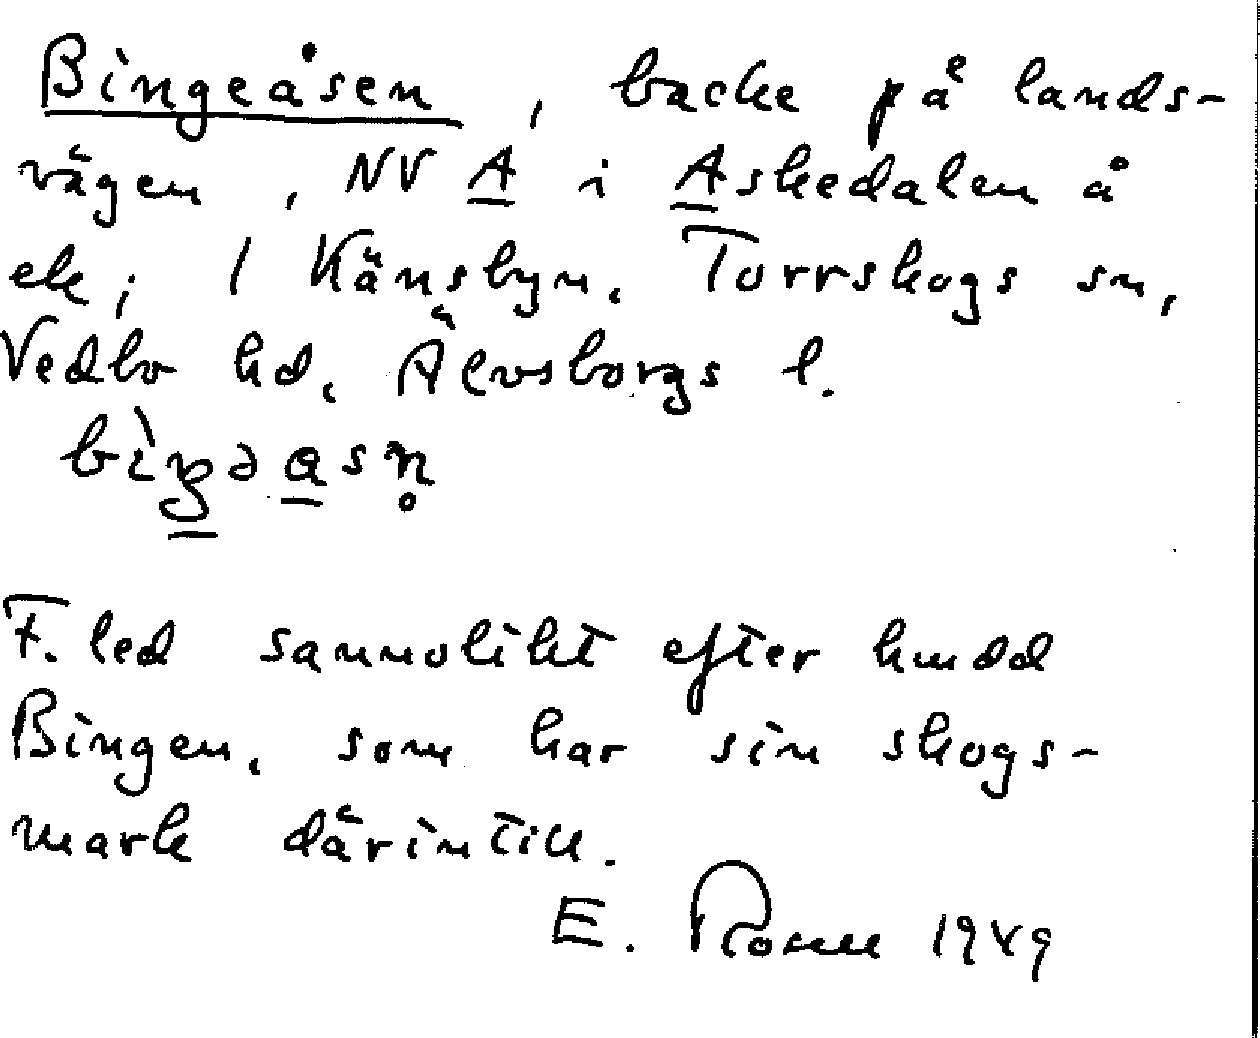 Bingeåsen, backe på lands-
vägen, NV A i Askedalen å
ek; 1 Känsbyn. Torrskogs sn,
Vedbo hd, Älvsborgs l.
bìŋəasn̥
F. led sannolikt efter hmdd
Bingen, som har sin skogs-
mark därintill.
E. 1949